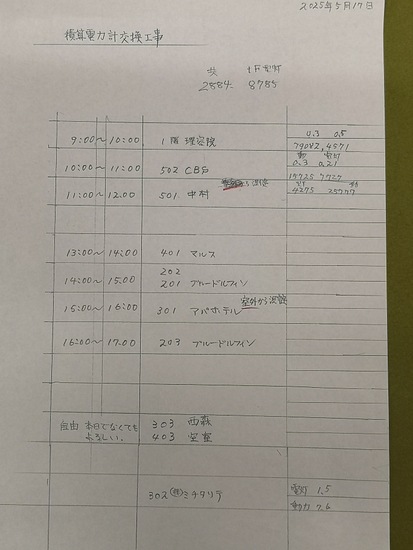 2025年5月17日
積算電力計交換工事
2884- 8785
9:00～10:00 1階 理容院 0.3 0.5
79082,4571
10:00～11:00 502 CBS 0.3 0.21
11:00～12.00 501 中村
4275
13:00～14:00 401 マルス
202
14:00～15.00 201 ブルードルフィン
15:00～16:00 301 アパホテル 室外から測定
16:00～17.00 203 ブルードルフィン
自由 本日でなくても 303 西森
よろしい。 403 空室
302 ㈱ミチタリテ 電灯 1.5
動力 7.6